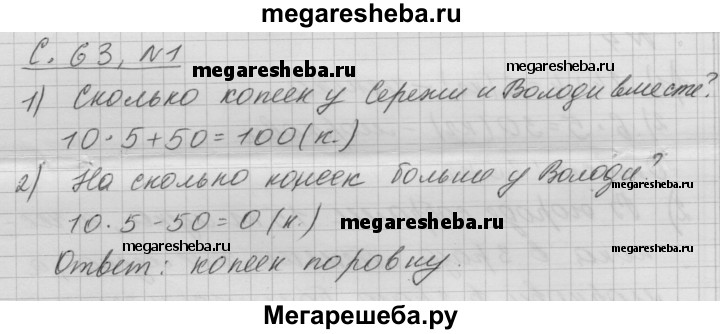 megaresheba.ru
С. 63, №1
megaresheba.ru
1) Сколько копеек у Сережи и Володи вместе?
10·5+50=100(к.)
2) На сколько копеек больше у Володи?
megaresheba.ru
10·5-50=0(к.)
megaresheba.ru
megaresheba.ru
megaresheba.ru
Ответ: копеек поровну.
Мегарешеба.ру